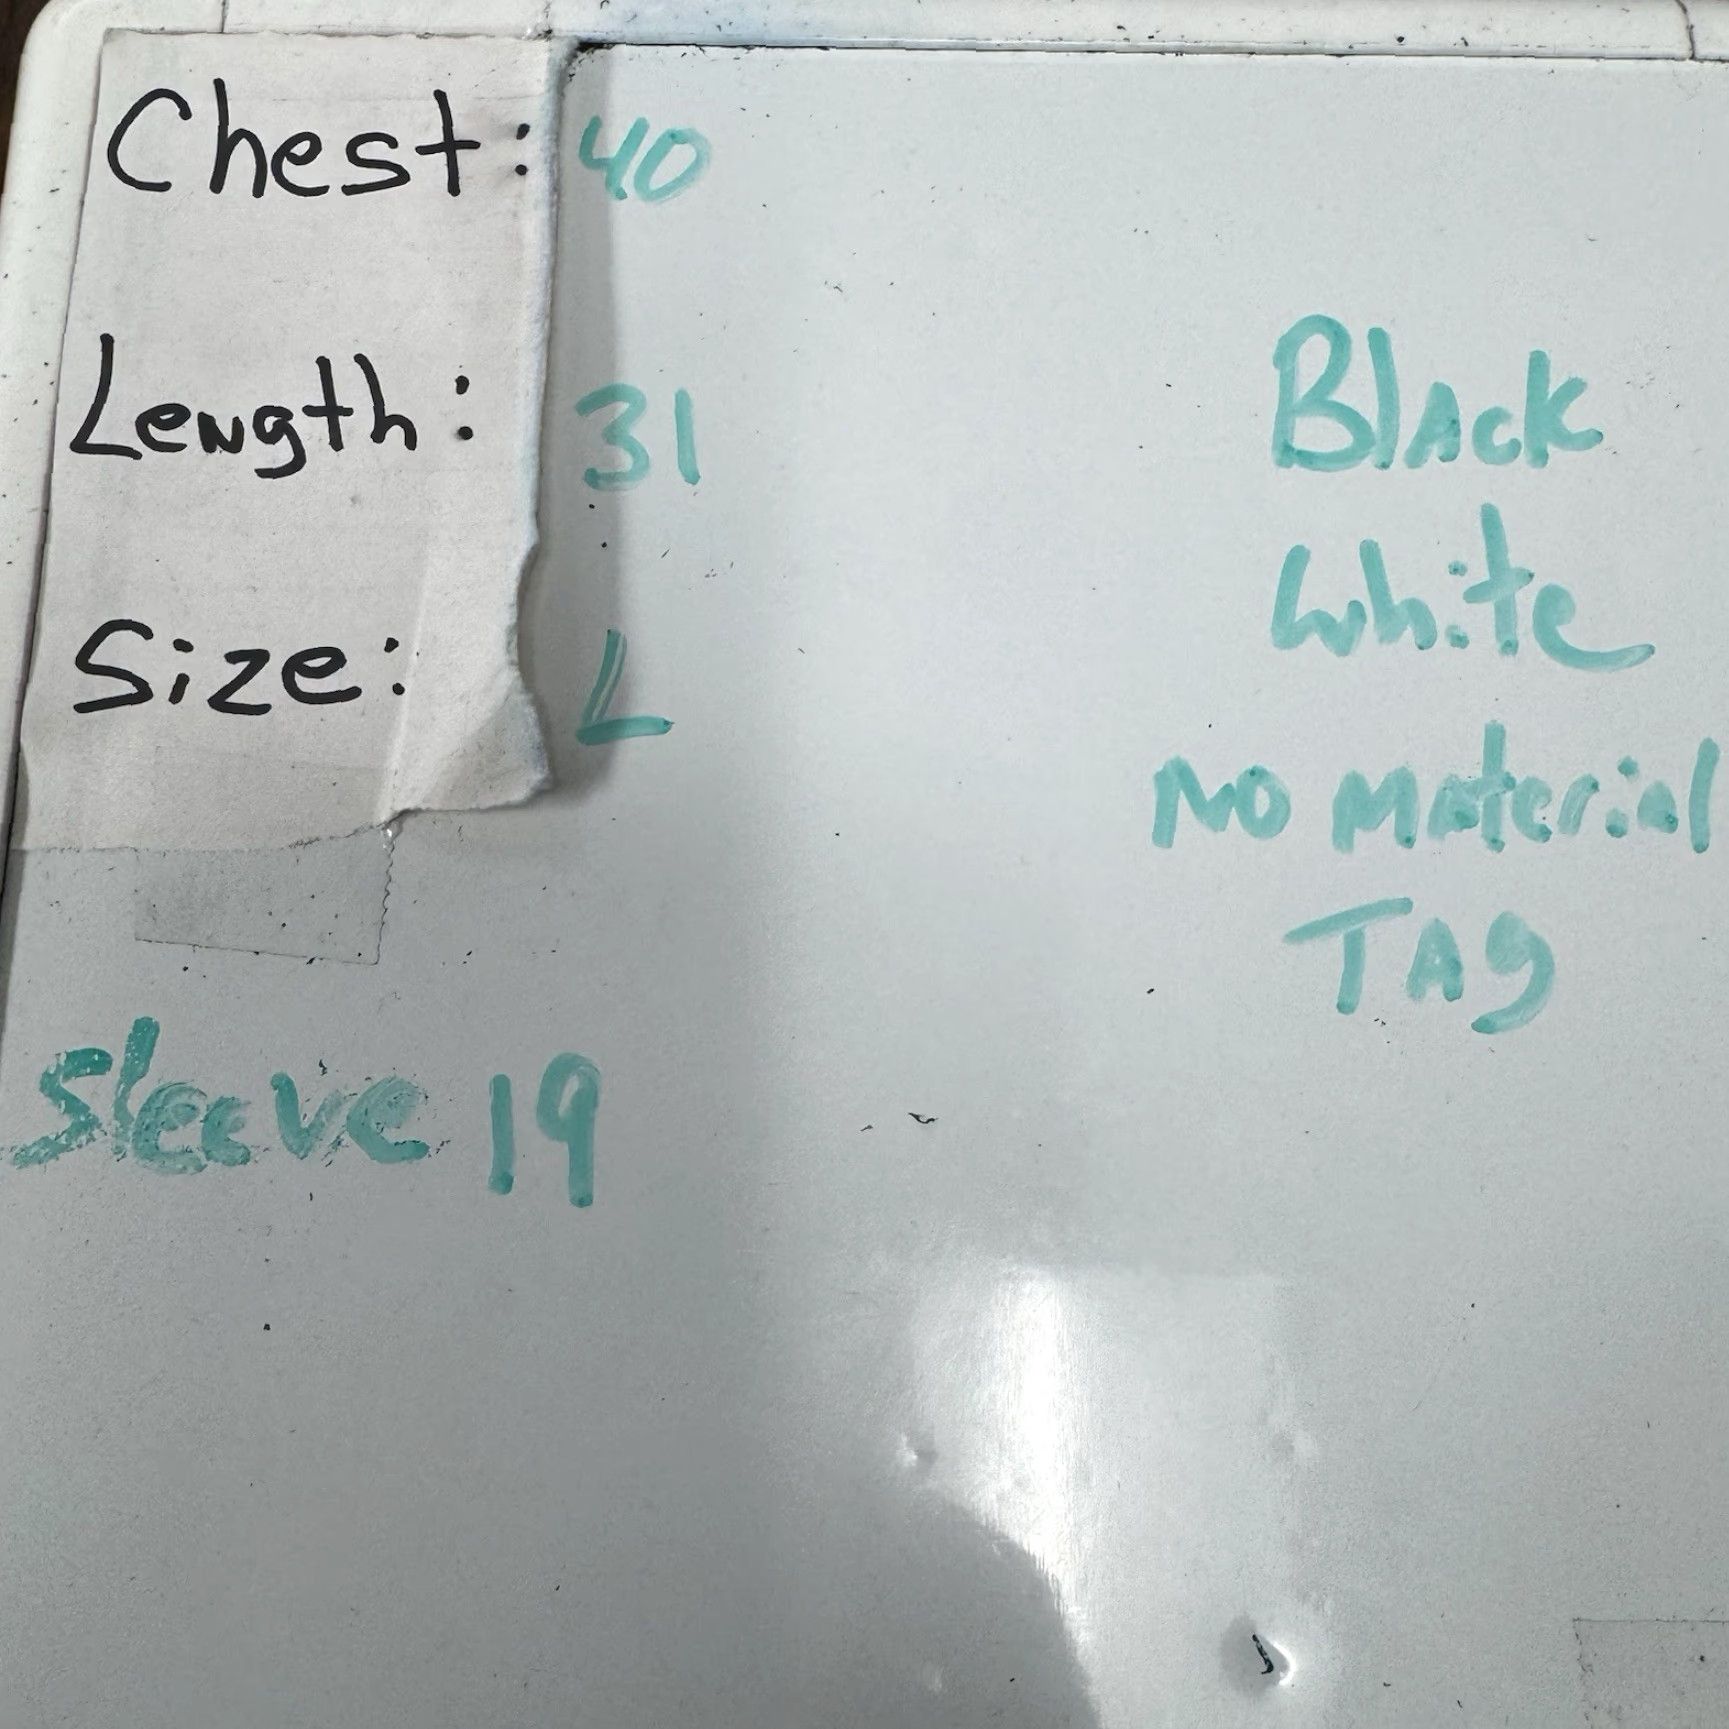 Chest: 40
Length: 31
Size: L
Sleeve 19
Black
White
No Material
TAg